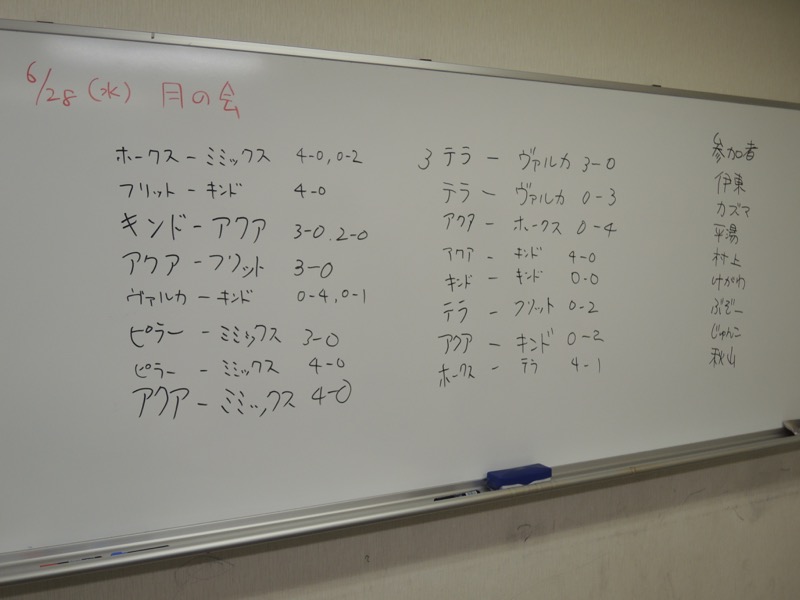 6/28(水) 月の会
ホークス－ミミックス 4-0, 0-2
フリット－キンド 4-0
キンド－アクア 3-0. 2-0
アクア－フリット 3-0
ヴァルカ－キンド 0-4, 0-1
ピラー－ミミックス 3-0
ピラー－ミミックス 4-0
アクア－ミミックス 4-0
3 テラ－ヴァルカ 3-0
テラ－ヴァルカ 0-3
アクア－ホークス 0-4
アクア－キンド 4-0
キンド－キンド 0-0
テラ－フリット 0-2
アクア－キンド 0-2
ホークス－テラ 4-1
参加者
伊東
カズマ
平湯
村上
けがわ
ぶぞー
じゅんこ
秋山